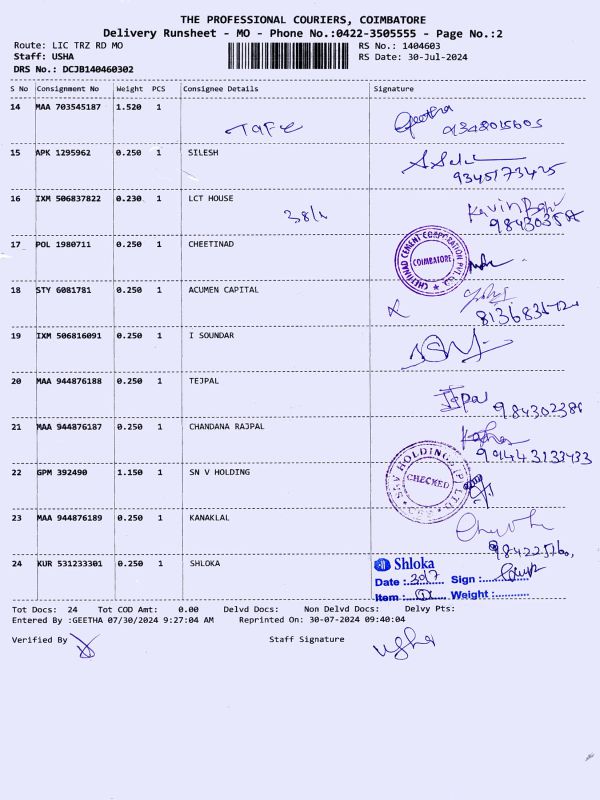 THE PROFESSIONAL COURIERS, COIMBATORE
Delivery Runsheet - MO - Phone No.:0422-3505555 - Page No.:2
Route: LIC TRZ RD MO RS No.: 1404603
Staff: USHA RS Date: 30-Jul-2024
DRS No.: DCJB140460302
S No Consignment No Weight PCS Consignee Details Signature
14 MAA 703545187 1.520 1
TAFE Geetha
9348015605
15 APK 1295962 0.250 1 SILESH
9345173425
16 IXM 506837822 0.230 1 LCT HOUSE
38/1
17 POL 1980711 0.250 1 CHEETINAD
CHEETINAD CEMENT CORPORATION PVT. LTD.
COIMBATORE
18 STY 6081781 0.250 1 ACUMEN CAPITAL
19 IXM 506816091 0.250 1 I SOUNDAR
20 MAA 944876188 0.250 1 TEJPAL
984302386
21 MAA 944876187 0.250 1 CHANDANA RAJPAL
22 GPM 392490 1.150 1 SN V HOLDING
HOLDINGS (P) LTD
CHECKED
23 MAA 944876189 0.250 1 KANAKLAL
24 KUR 531233301 0.250 1 SHLOKA
Shloka
Date : Sign :
Item : Weight :
Tot Docs: 24 Tot COD Amt: 0.00 Delvd Docs: Non Delvd Docs: Delvy Pts:
Entered By :GEETHA 07/30/2024 9:27:04 AM Reprinted On: 30-07-2024 09:40:04
Verified By Staff Signature
usha